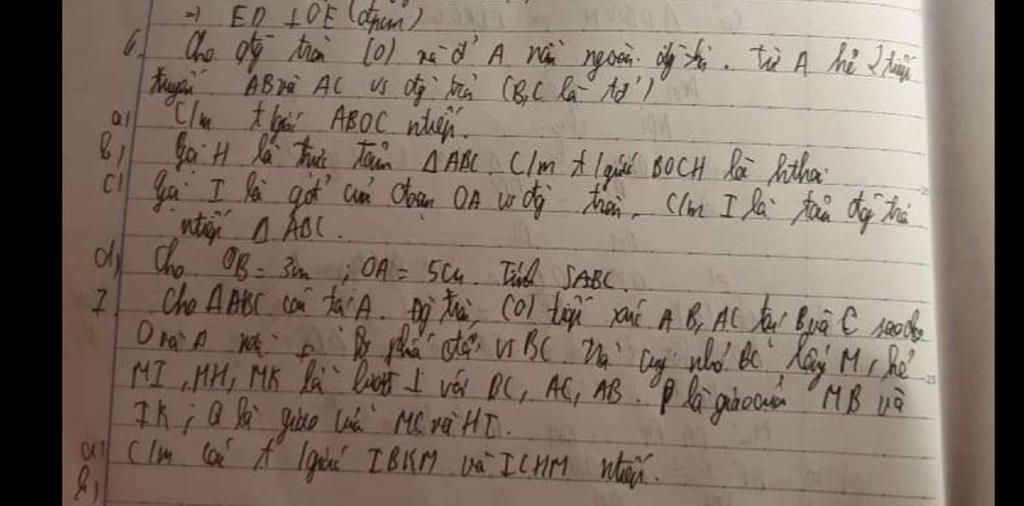 => ED ⊥ OE (đpcm)
6. Cho đg tròn (O) và đ' A nằm ngoài đg tr. Từ A kẻ 2 tiếp
tuyến AB và AC vs đg trò (B,C là tđ')
a, C/m t/giác ABOC ntiếp.
b, Gọi H là trực tâm ΔABC. C/m t/giác BOCH là hthoi
c, Gọi I là gđ' của đoạn OA vs đg tròn. C/m I là tâm đg trò
ntiếp ΔABC.
d, Cho OB = 3cm ; OA = 5cm. Tính SABC.
7. Cho ΔABC cân tại A. Đg tròn (O) tiếp xúc AB, AC tại B và C sao cho
O và A nằm phía đối vs BC. Trên cung nhỏ BC lấy M, kẻ
MI, MH, MK lần lượt ⊥ với BC, AC, AB. P là giao của MB và
IK ; Q là giao của MC và HI.
a, C/m các t/giác IBKM và ICHM ntiếp.
b,